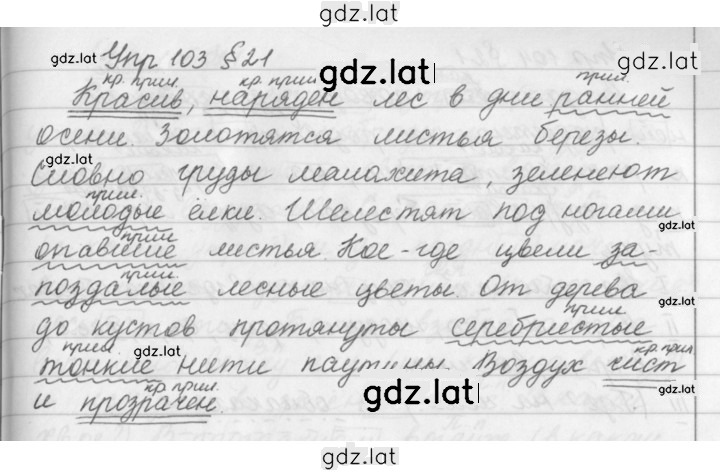 gdz.lat
gdz.lat
Упр 103 § 21
gdz.lat
gdz.lat
кр. прил. кр. прил. прил.
Красив, наряден лес в дни ранней
осени. Золотятся листья березы.
gdz.lat
Словно груды малахита, зеленеют
прил.
молодые ёлки. Шелестят под ногами
gdz.lat
прил.
опавшие листья. Кое-где цвели за-
прил.
поздалые лесные цветы. От дерева
gdz.lat
прил.
до кустов протянуты серебристые
прил. gdz.lat кр. прил.
тонкие нити паутины. Воздух чист
кр. прил.
и прозрачен.
gdz.lat
gdz.lat
gdz.lat